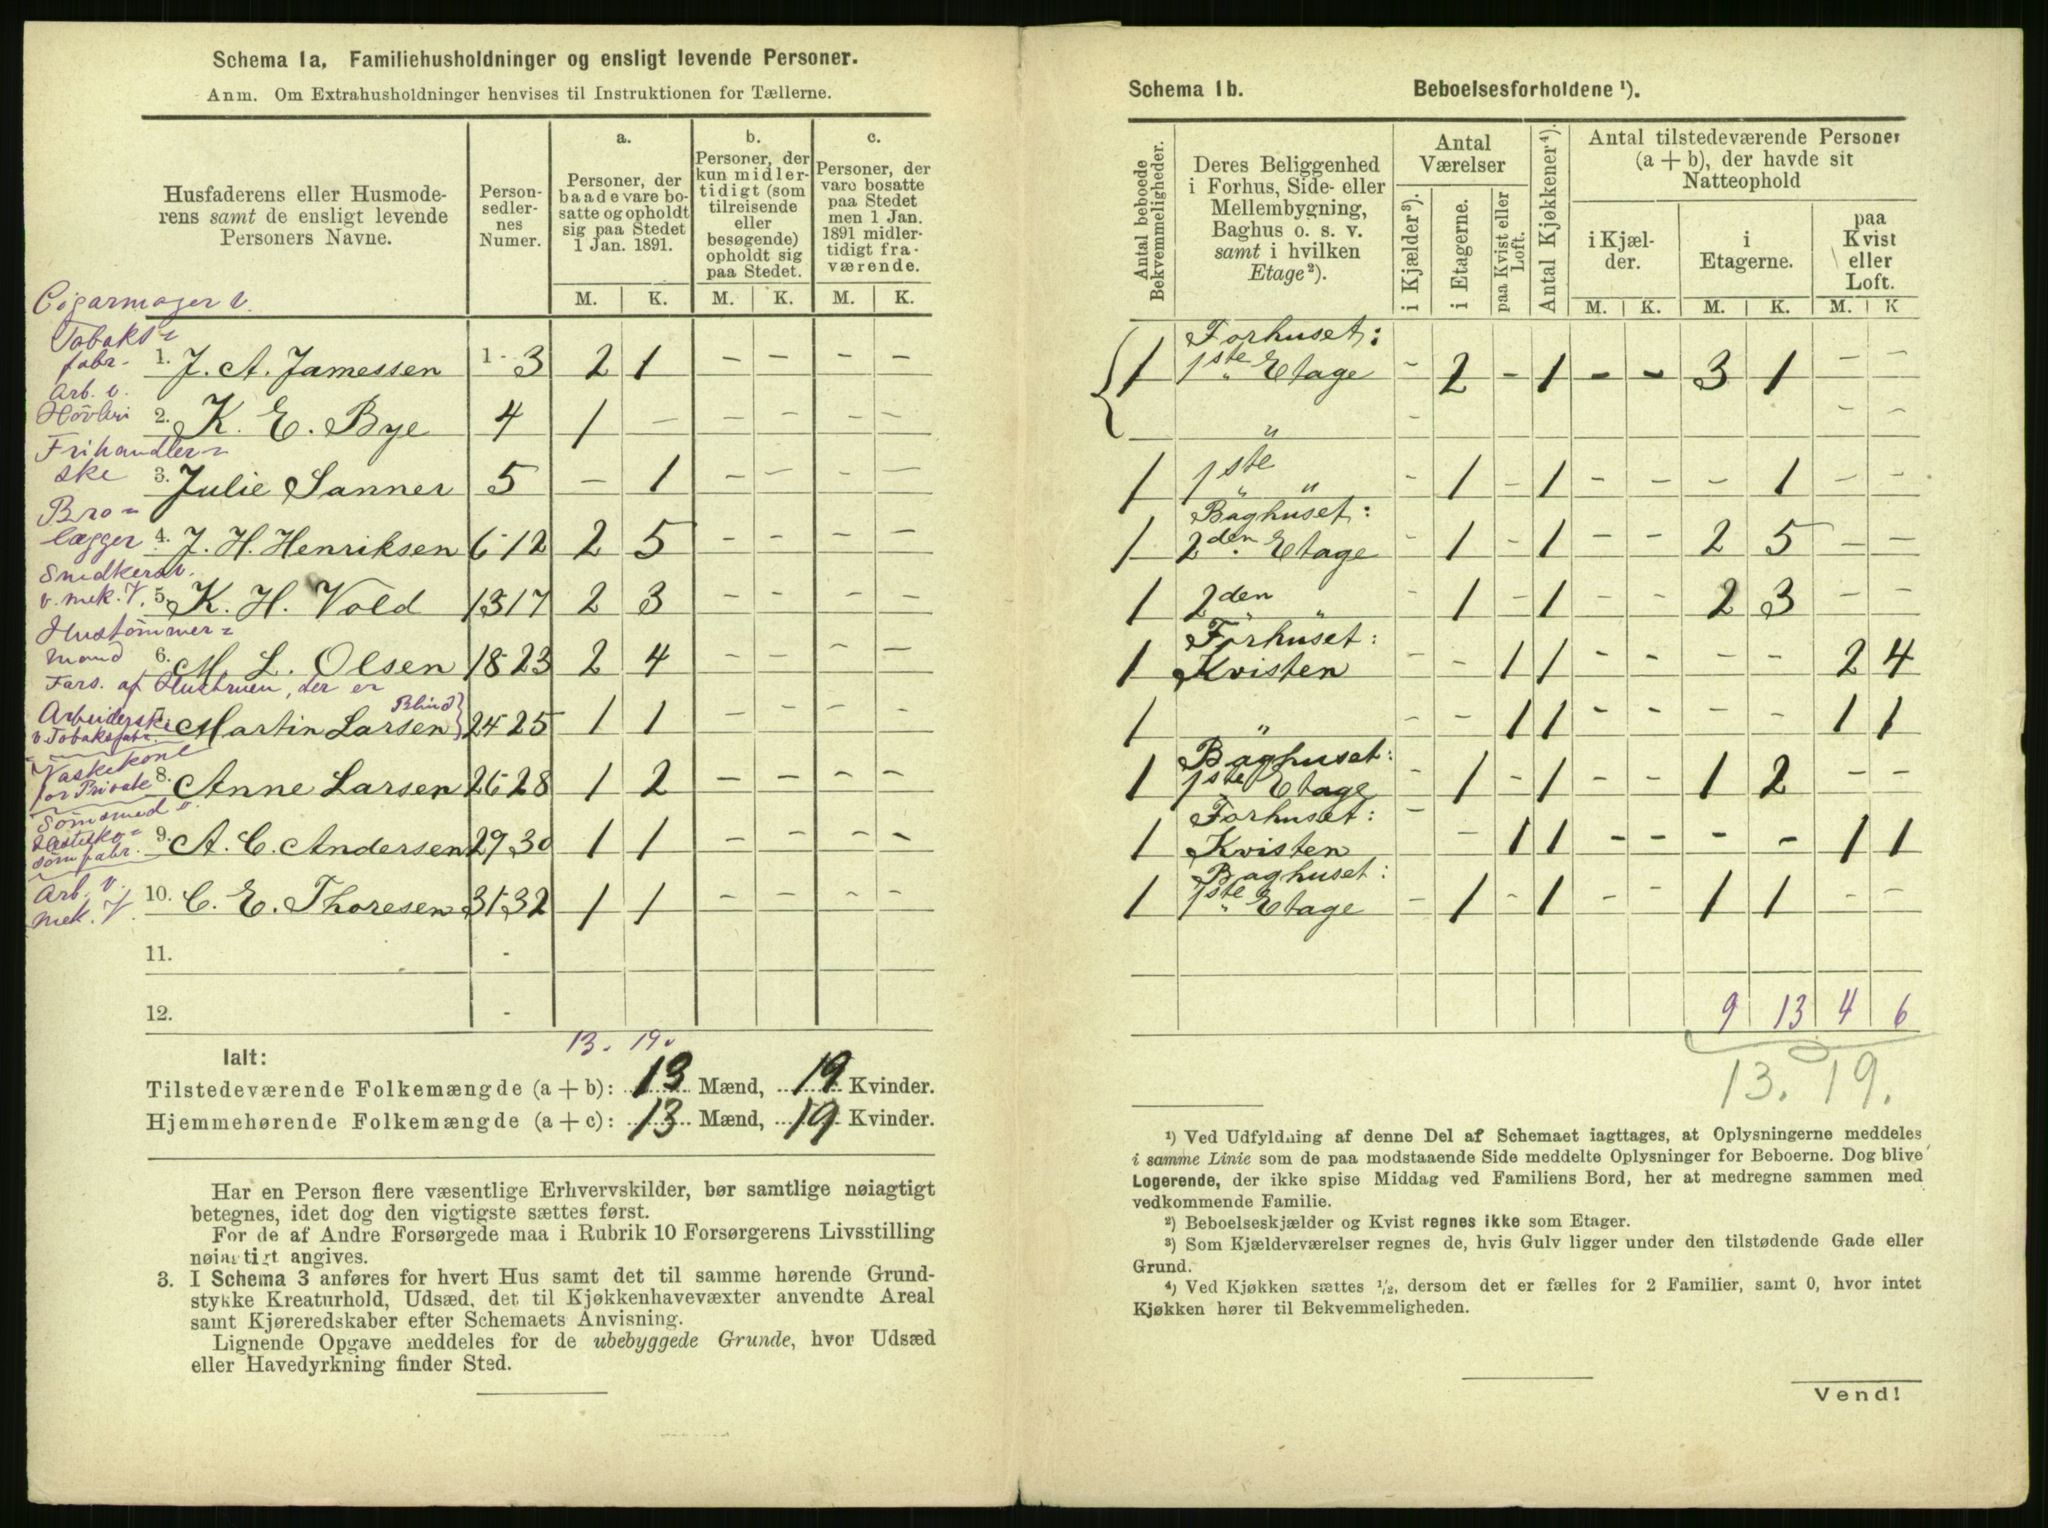 Schema 1a. Familiehusholdninger og ensligt levende Personer.
Anm. Om Extrahusholdninger henvises til Instruktionen for Tællerne.
Husfaderens eller Husmode-
rens samt de ensligt levende
Personers Navne.
Person-
sedler-
nes
Numer.
a.
Personer, der
baade vare bo-
satte og opholdt
sig paa Stedet
1 Jan. 1891.
b.
Personer, der
kun midler-
tidigt (som
tilreisende
eller
besøgende)
opholdt sig
paa Stedet.
c.
Personer, der
vare bosatte
paa Stedet
men 1 Jan.
1891 midler-
tidigt fra-
værende.
M. K. M. K. M. K.
Cigarmager v.
Tobaks=
fabr.
1. J. A. Jamessen 1-3 2 1 – – – –
Arb. v.
Høvleri
2. K. E. Bye 4 1 – – – – –
Frihandler=
ske
3. Julie Sanner 5 – 1 – – – –
Bro=
lægger
4. J. H. Henriksen 6-12 2 5 – – – –
Snedkersv.
v. mek. V.
5. K. H. Vold 13-17 2 3 – – – –
Hustømmer=
mand
6. M. L. Olsen 18-23 2 4 – – – –
Fors. af Hustruen, der er
Arbeidersk.
v. Tobaksfabr.
Martin Larsen Blind } 24-25 1 1 – – – –
Vaskekone
for Private
8. Anne Larsen 26-28 1 2 – – – –
Sømsmed v.
Hestesko=
sømfabr.
9. A. C. Andersen 29-30 1 1 – – – –
Arb. v.
mek. V.
10. C. E. Thoresen 31-32 1 1 – – – –
11. -
12. -
13. 19.
Ialt:
Tilstedeværende Folkemængde (a + b): 13 Mænd, 19 Kvinder.
Hjemmehørende Folkemængde (a + c): 13 Mænd, 19 Kvinder.
Har en Person flere væsentlige Erhvervskilder, bør samtlige nøiagtigt
betegnes, idet dog den vigtigste sættes først.
For de af Andre Forsørgede maa i Rubrik 10 Forsørgerens Livsstilling
nøiagtigt angives.
3. I Schema 3 anføres for hvert Hus samt det til samme hørende Grund-
stykke Kreaturhold, Udsæd, det til Kjøkkenhavevæxter anvendte Areal
samt Kjøreredskaber efter Schemaets Anvisning.
Lignende Opgave meddeles for de ubebyggede Grunde, hvor Udsæd
eller Havedyrkning finder Sted.
Schema 1b. Beboelsesforholdene ¹).
Antal beboede
Bekvemmeligheder.
Deres Beliggenhed
i Forhus, Side- eller
Mellembygning,
Baghus o. s. v.
samt i hvilken
Etage²).
Antal
Værelser
i Kjælder³).
i Etagerne.
paa Kvist eller
Loft.
Antal Kjøkkener⁴).
Antal tilstedeværende Personer
(a + b), der havde sit
Natteophold
i Kjæl-
der.
i
Etagerne.
paa
Kvist
eller
Loft.
M. K. M. K. M. K
Forhuset:
{ 1 1ste Etage – 2 – 1 – – 3 1 – –
„ – – –
1 1ste „ „ – 1 – 1 – – – 1 – –
Baghuset:
1 2den Etage – 1 – 1 – – 2 5 – –
1 2den „ „ – 1 – 1 – – 2 3 – –
Forhuset:
1 Kvisten – – 1 1 – – – – 2 4
1 „ – – 1 1 – – – – 1 1
Baghuset:
1 1ste Etage – 1 – 1 – – 1 2 – –
Forhuset:
1 Kvisten – – 1 1 – – – – 1 1
Baghuset:
1 1ste Etage – 1 – 1 – – 1 1 – –
9 13 4 6
13. 19.
¹) Ved Udfyldning af denne Del af Schemaet iagttages, at Oplysningerne meddeles
i samme Linie som de paa modstaaende Side meddelte Oplysninger for Beboerne. Dog blive
Logerende, der ikke spise Middag ved Familiens Bord, her at medregne sammen med
vedkommende Familie.
²) Beboelseskjælder og Kvist regnes ikke som Etager.
³) Som Kjælderværelser regnes de, hvis Gulv ligger under den tilstødende Gade eller
Grund.
⁴) Ved Kjøkken sættes ½, dersom det er fælles for 2 Familier, samt 0, hvor intet
Kjøkken hører til Bekvemmeligheden.
Vend!